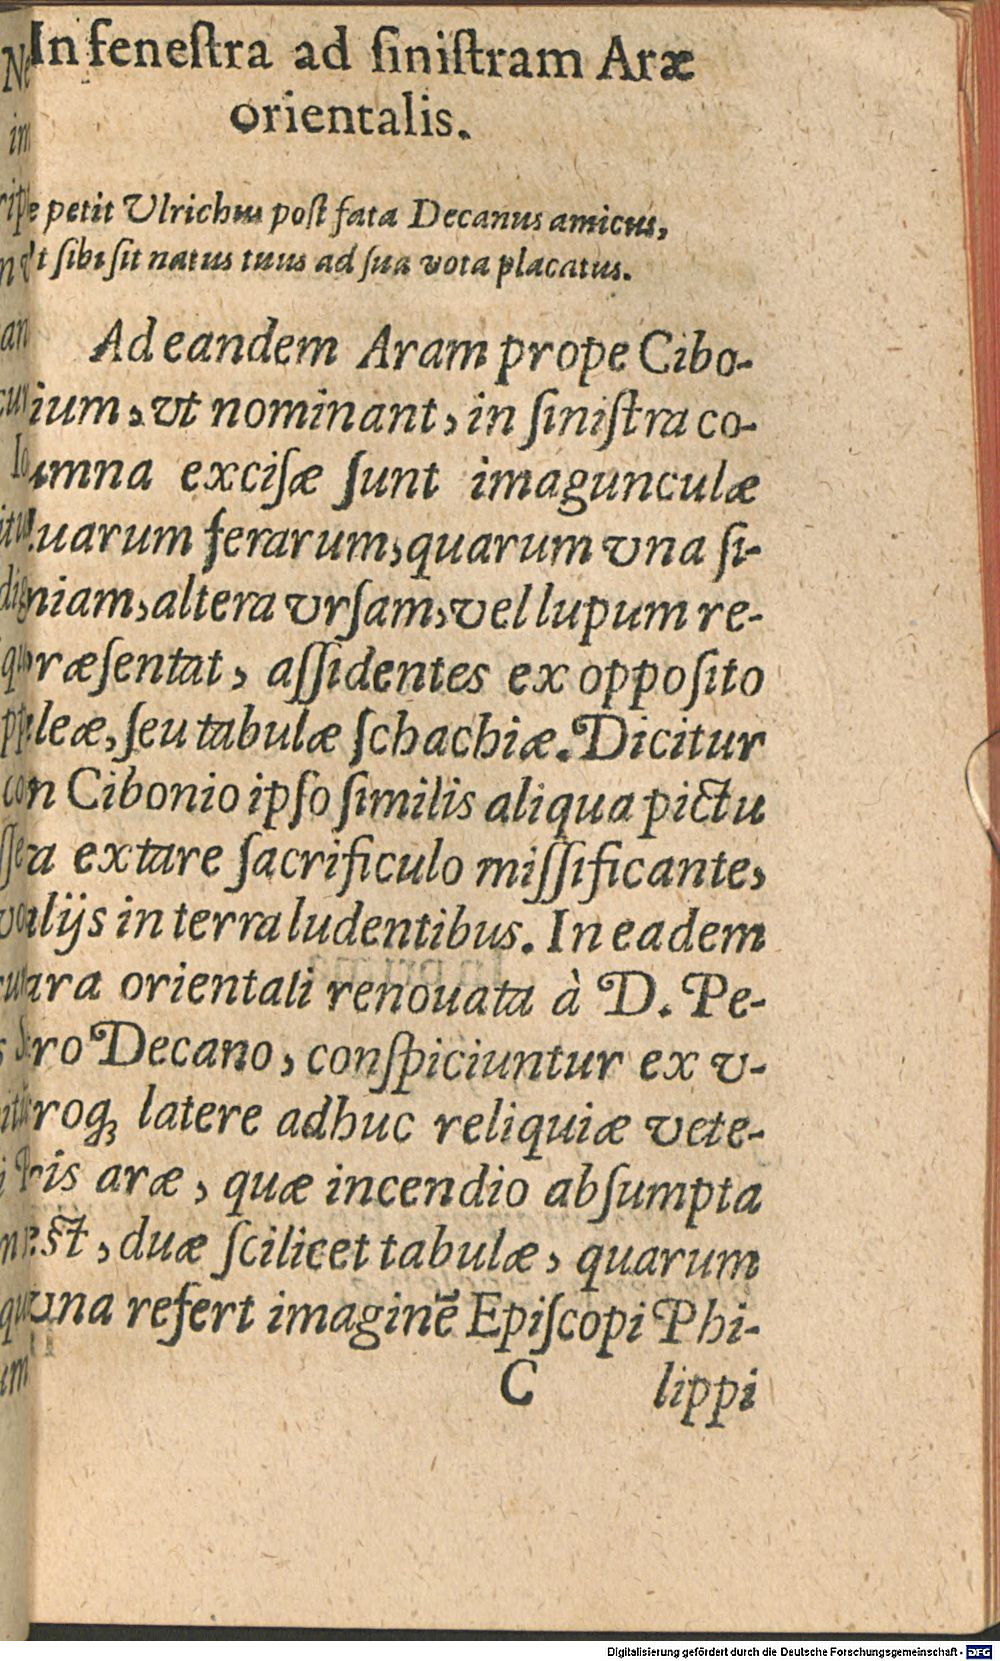 In feneſtra ad ſiniſtram Aræ
orientalis.
e petit Ulrichus poſt fata Decanus amicus,
t ſibi ſit natus tuus ad ſua vota placatus.
Ad eandem Aram prope Cibo-
ium, vt nominant, in ſiniſtra co-
umna exciſæ ſunt imagunculæ
uarum ferarum, quarum vna ſi-
niam, altera vrſam, vel lupum re-
ræſentat, aſſidentes ex oppoſito
leæ, ſeu tabulæ ſchachiæ. Dicitur
n Cibonio ipſo ſimilis aliqua pictu
a extare ſacrificulo miſſificante,
alijs in terra ludentibus. In eadem
ara orientali renouata à D. Pe-
ro Decano, conſpiciuntur ex v-
roq; latere adhuc reliquiæ vete-
ris aræ, quæ incendio abſumpta
eſt, duæ ſcilicet tabulæ, quarum
vna refert imaginē Epiſcopi Phi-
C lippi
Digitalisierung gefördert durch die Deutsche Forschungsgemeinschaft - DFG